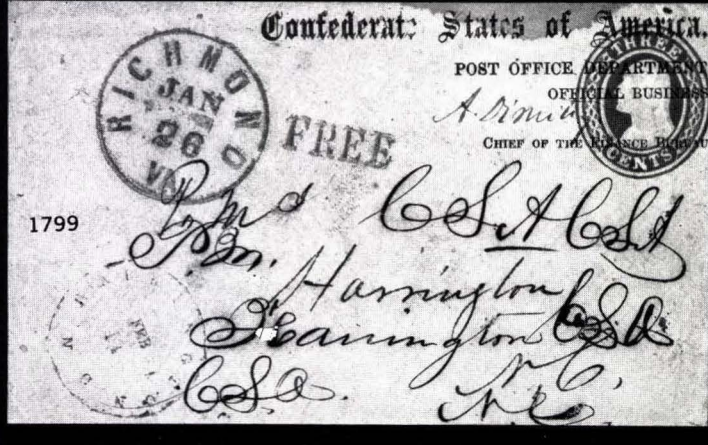 Confederate States of America.
POST OFFICE DEPARTMENT
OFFICIAL BUSINESS
CHIEF OF THE FINANCE BUREAU
THREE
CENTS
RICHMOND
JAN
26
VA
FREE
1799
CSA CSA
P.M.
Harrington
Harrington CSA
N.C.
CSA. N.C.
FEB